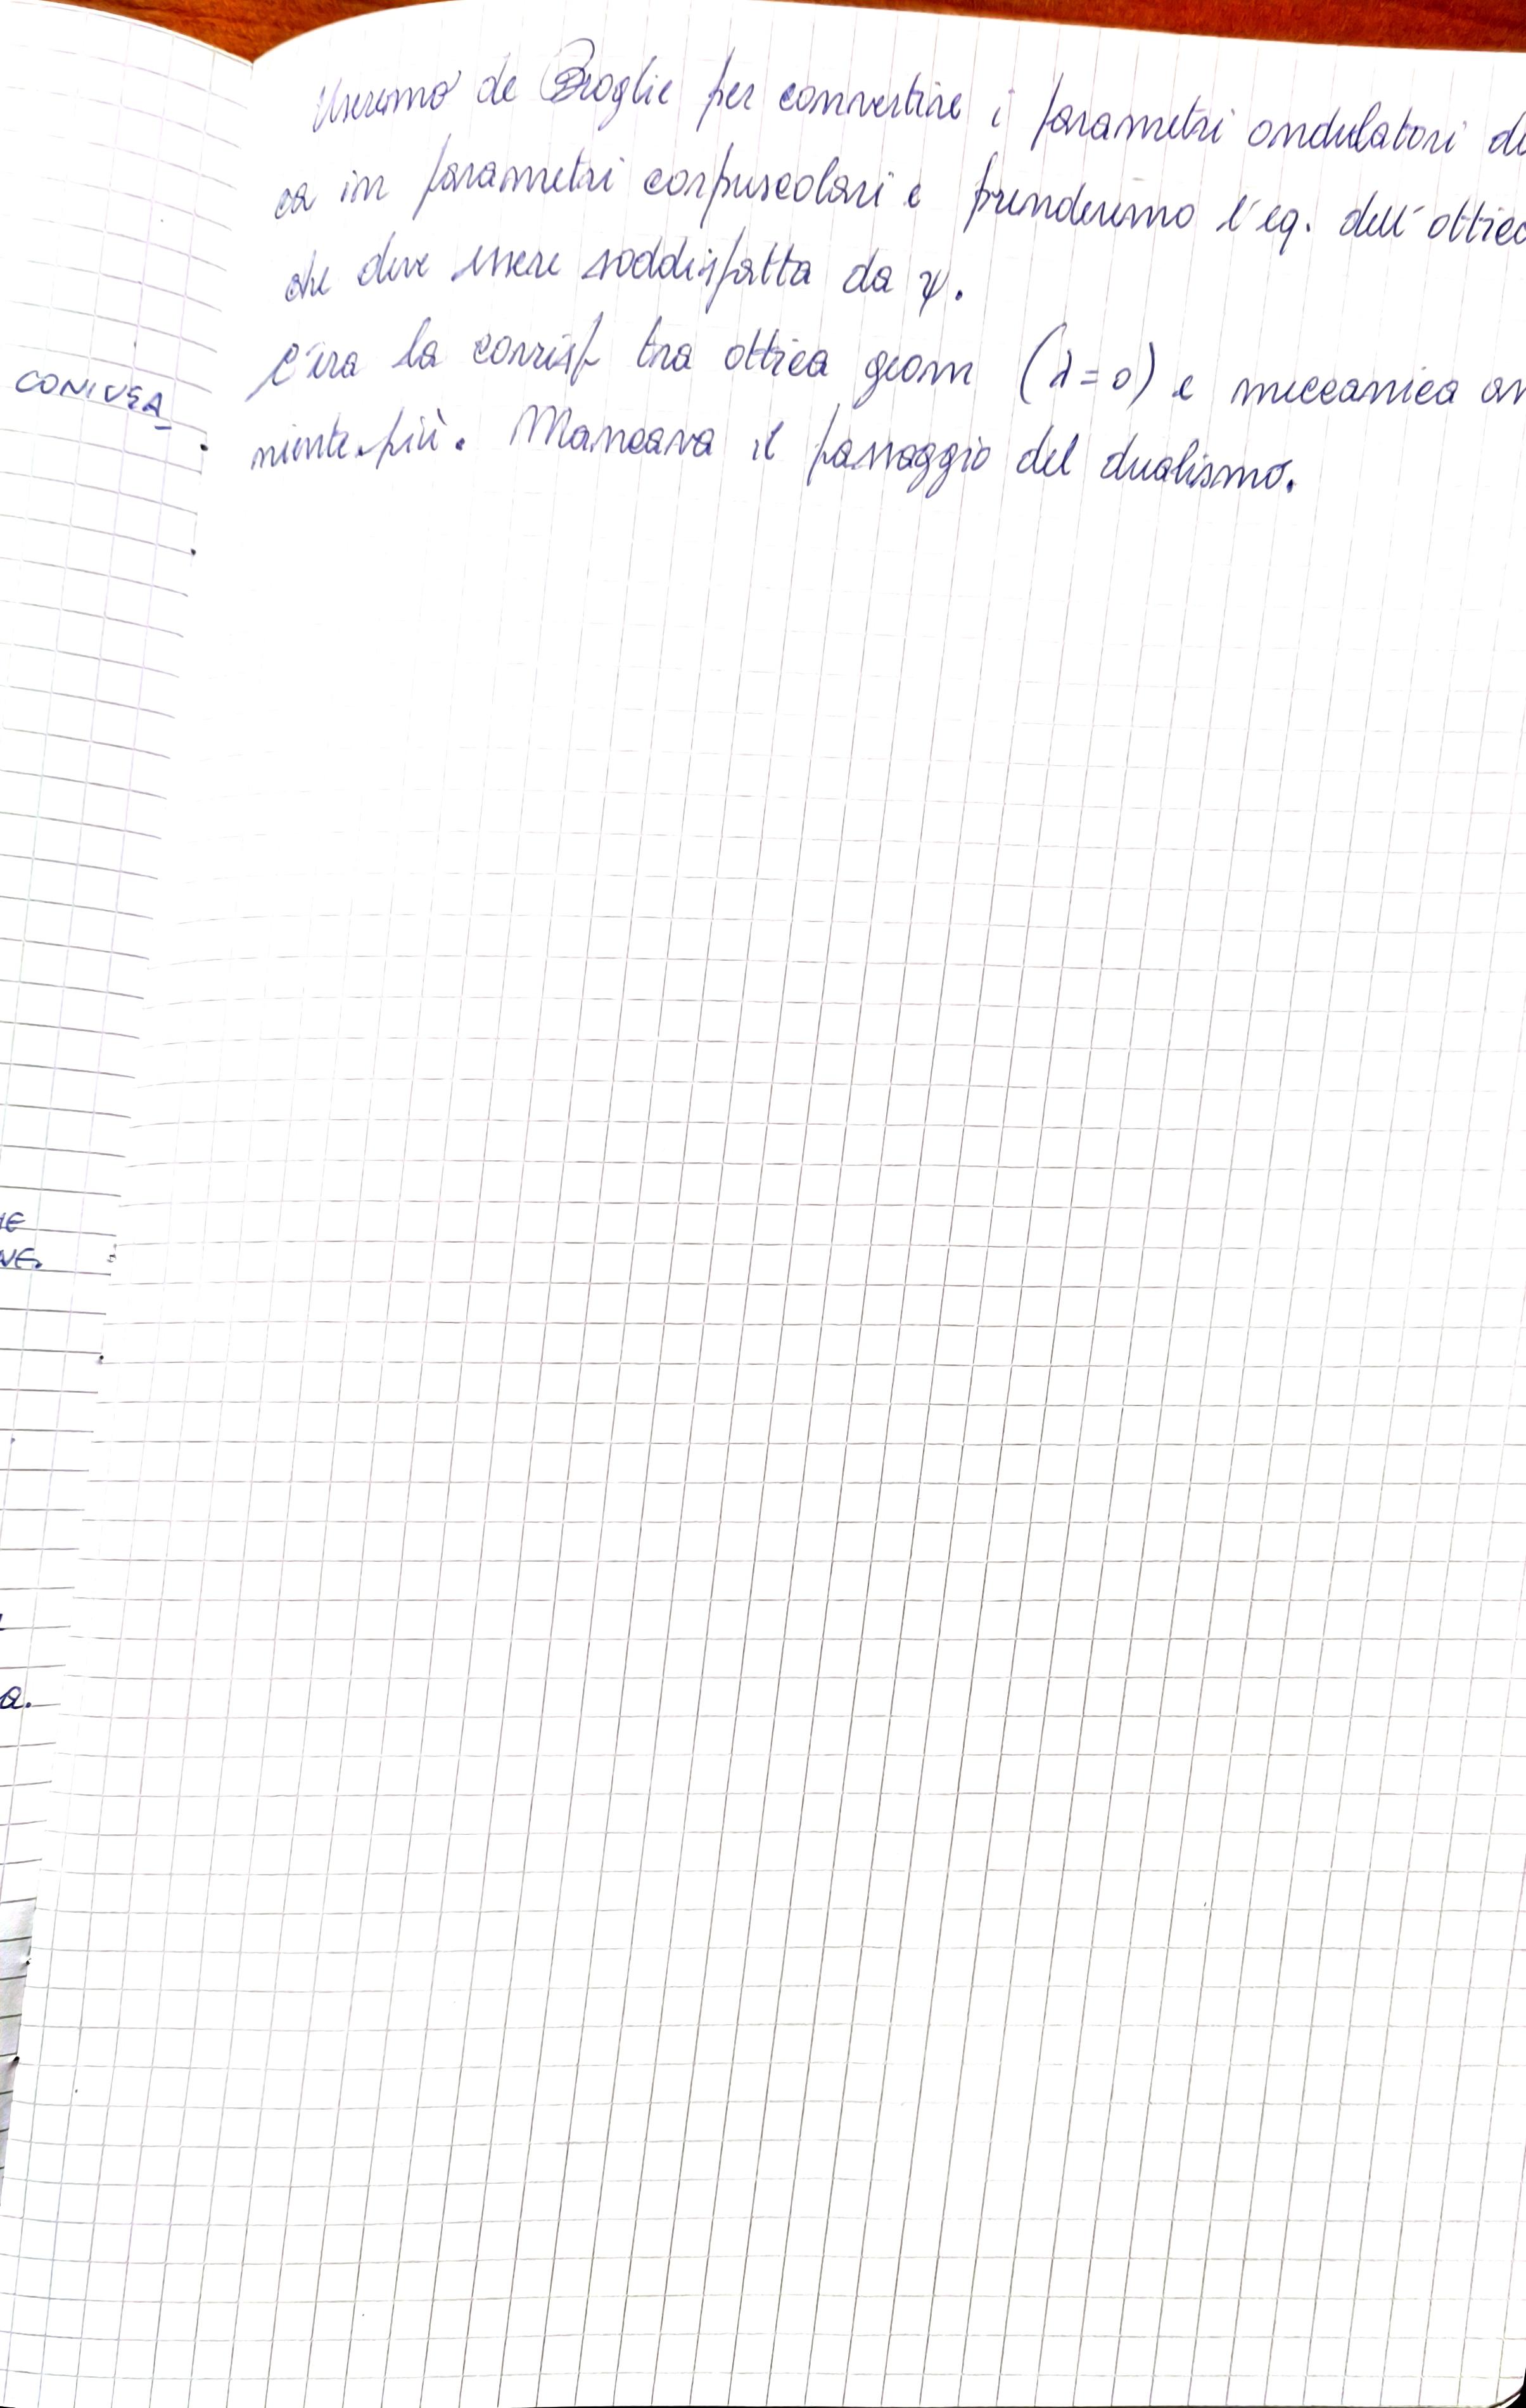 Useremo de Broglie per convertire i parametri ondulatori de
ca in parametri corpuscolari e prenderemo l'eq. dell'ottica
che deve essere soddisfatta da ψ.
C'era la corrisp tra ottica geom (λ=0) e meccanica an
niente più. Mancava il passaggio del dualismo.
CONIUGA
NE.
a.